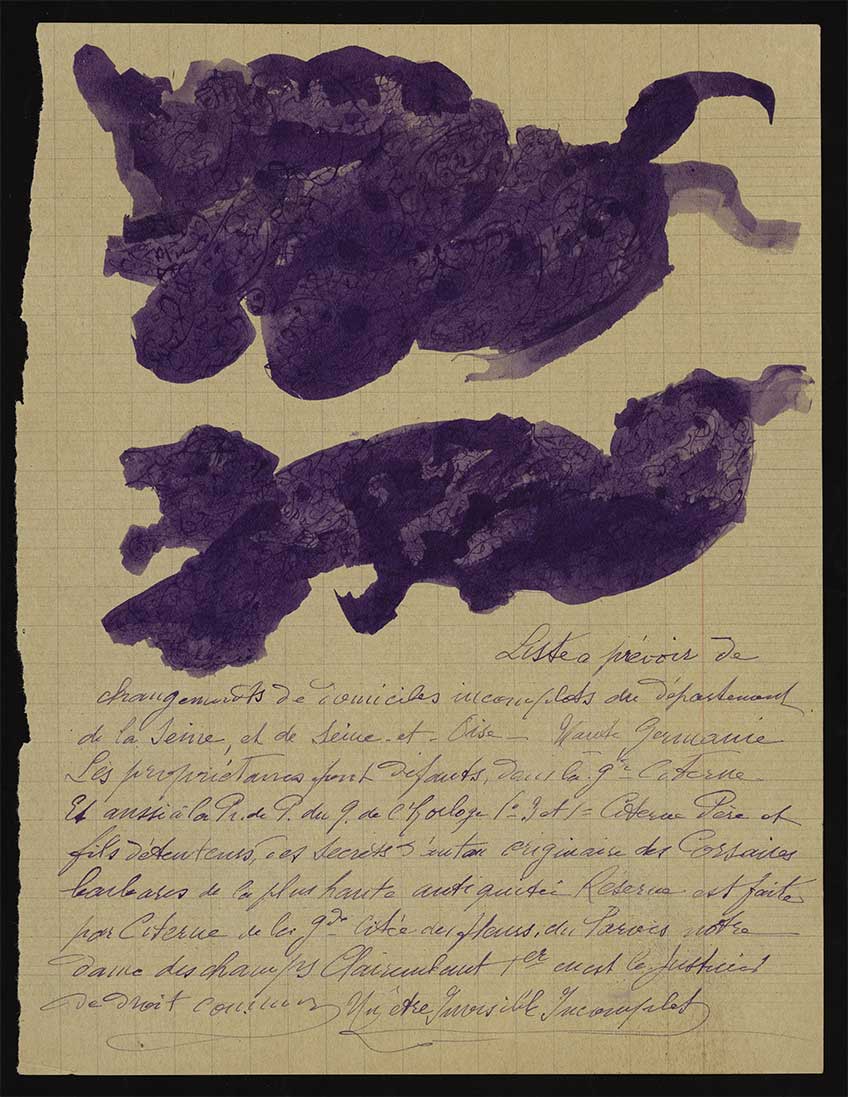 Liste a prévoir de
changements de domiciles incomplets du département
de la Seine, et de Seine-et-Oise - Haute Germanie
Les propriétaires sont défants, dans la gde Citerne.
Et aussi à la Pr. de P. du q. de l'Horloge Citerne Père et
fils détenteurs, des secrets d'antan originaire des Corsaires
barbares de la plus haute antiquité Reserve est faite
par Citerne de la gde Citée des fleurs, du Parvis notre
dame des champs Clairembaut 1er en est le Justicier
de droit commun Un être Invisible Incomplet